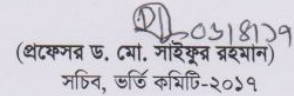 ০১।৪।১৭
(প্রফেসর ড. মো. সাইফুর রহমান)
সচিব, ভর্তি কমিটি-২০১৭